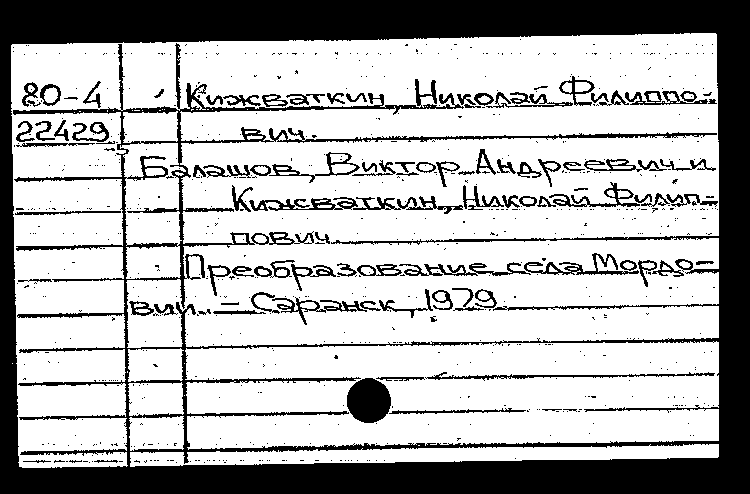 80-4 Кижваткин, Николай Филиппо-
22429 вич.
-5
Балашов, Виктор Андреевич и
Кижваткин, Николай Филип-
пович.
Преобразование села Мордо-
вии. – Саранск, 1979